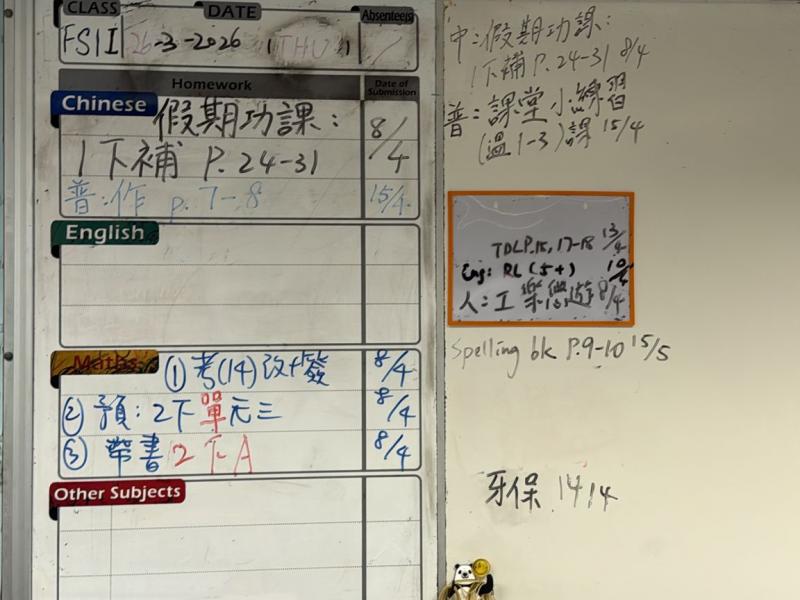 CLASS DATE Absentee(s)
FSII 26-3-2026 (THU)
Homework Date of Submission
Chinese 假期功課: 8/4
1下補 P.24-31
普:作 p.7-8 15/4
English
Maths ①考(14)改+簽 8/4
②預:2下單元三 8/4
③帶書2下A 8/4
Other Subjects
中:假期功課:
1下補 P.24-31 8/4
普:課堂小練習
(溫1-3)課 15/4
TDLP.15,17-18 13/4
Eng: RL (5+) 10/4
人:工 樂悠遊 8/4
Spelling bk P.9-10 15/5
牙保 14/4